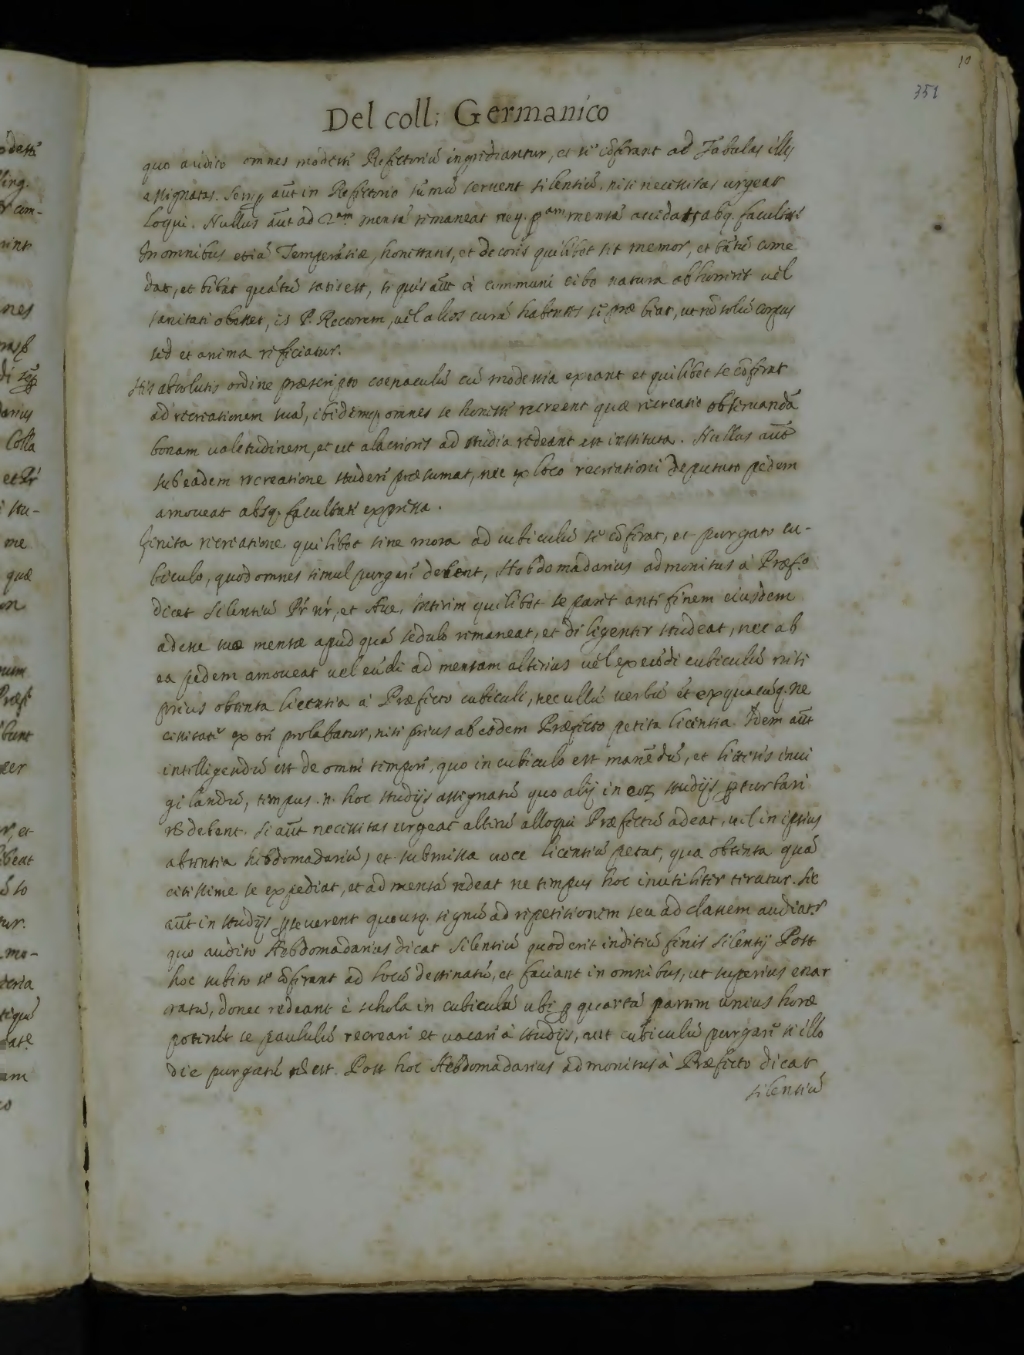 10
351
Del coll: Germanico
quo audito omnes modestè Refectoriū ingrediantur, et se cōferant ad Tabulas illis
assignatas. Semp aūt in Refectorio sūmū servent silentiū, nisi necessitas urgeat
loqui. Nullus aūt ad 2am mensā remaneat neq. pam mensā accedat absq. facultate
In omnibus etiā Temperātiæ, honestatis, et decoris quilibet sit memor, et tātū come
dat, et bibat quātū satis est, si quis aūt à communi cibo natura abhorreret vel
sanitati obesset, is P. Rectorem, vel alios curā habentes se præbeat, ut nō solū corpus
sed et anima reficiatur.
His absolutis ordine præscripto coenaculū cū modestia exeant et quilibet se cōferat
ad recreationem suā, ibidemq omnes se honestè recreent quæ recreatio ob servandā
bonam valetudinem, et ut alacriores ad studia redeant est instituta. Nullus aūt
sub eadem recreatione studere præsumat, nec ex loco recreationi deputato pedem
amoveat absq. facultate expressa.
Finita recreatione quilibet sine mora ad cubiculū se cōferat, et purgato cu-
biculo, quod omnes simul purgare debent, Hebdomadarius admonitus à Præfo
dicat Silentiū Pr nr, et Ave, interim quilibet se paret ante finem eiusdem
ad usū suæ mensæ apud quā sedulo remaneat, et diligenter studeat, nec ab
ea pedem amoveat vel eūdi ad mensam alterius vel exeūdi cubiculū nisi
prius obtenta licentia à Præfecto cubiculi, nec ullū verbū et ex quacūq. ne
cessitate ex ore prolabatur, nisi prius ab eodem Præfecto petita licentia. Idem aūt
intelligendū est de omni tempore, quo in cubiculo est manēdū, et litteris invi
gilandū, tempus .n. hoc studijs assignatū quo alij in eorū studijs perturbari
nō debent. Si aūt necessitas urgeat alterū alloqui Præfectū adeat, vel in ipsius
absentia hebdomadariū, et submissa voce licentiā petat, qua obtenta quā
citissime se expediat, et ad mensā redeat ne tempus hoc inutiliter teratur. Sic
aūt in studijs perseverent quousq. signū ad repetitionem seu ad classem audiatr
quo audito Hebdomadarius dicat Silentiū quod erit inditiū finis silentij Post
hoc subito se cōferant ad locū destinatū, et faciant in omnibus, ut superius enar
ratū, donec redeant è schola in cubiculū ubi p quartā partem unius horæ
poterūt se paululū recreare et vacare à studijs, aut cubiculū purgare si illo
die purgatū nō est. Post hoc Hebdomadarius admonitus à Præfecto dicat
silentiū